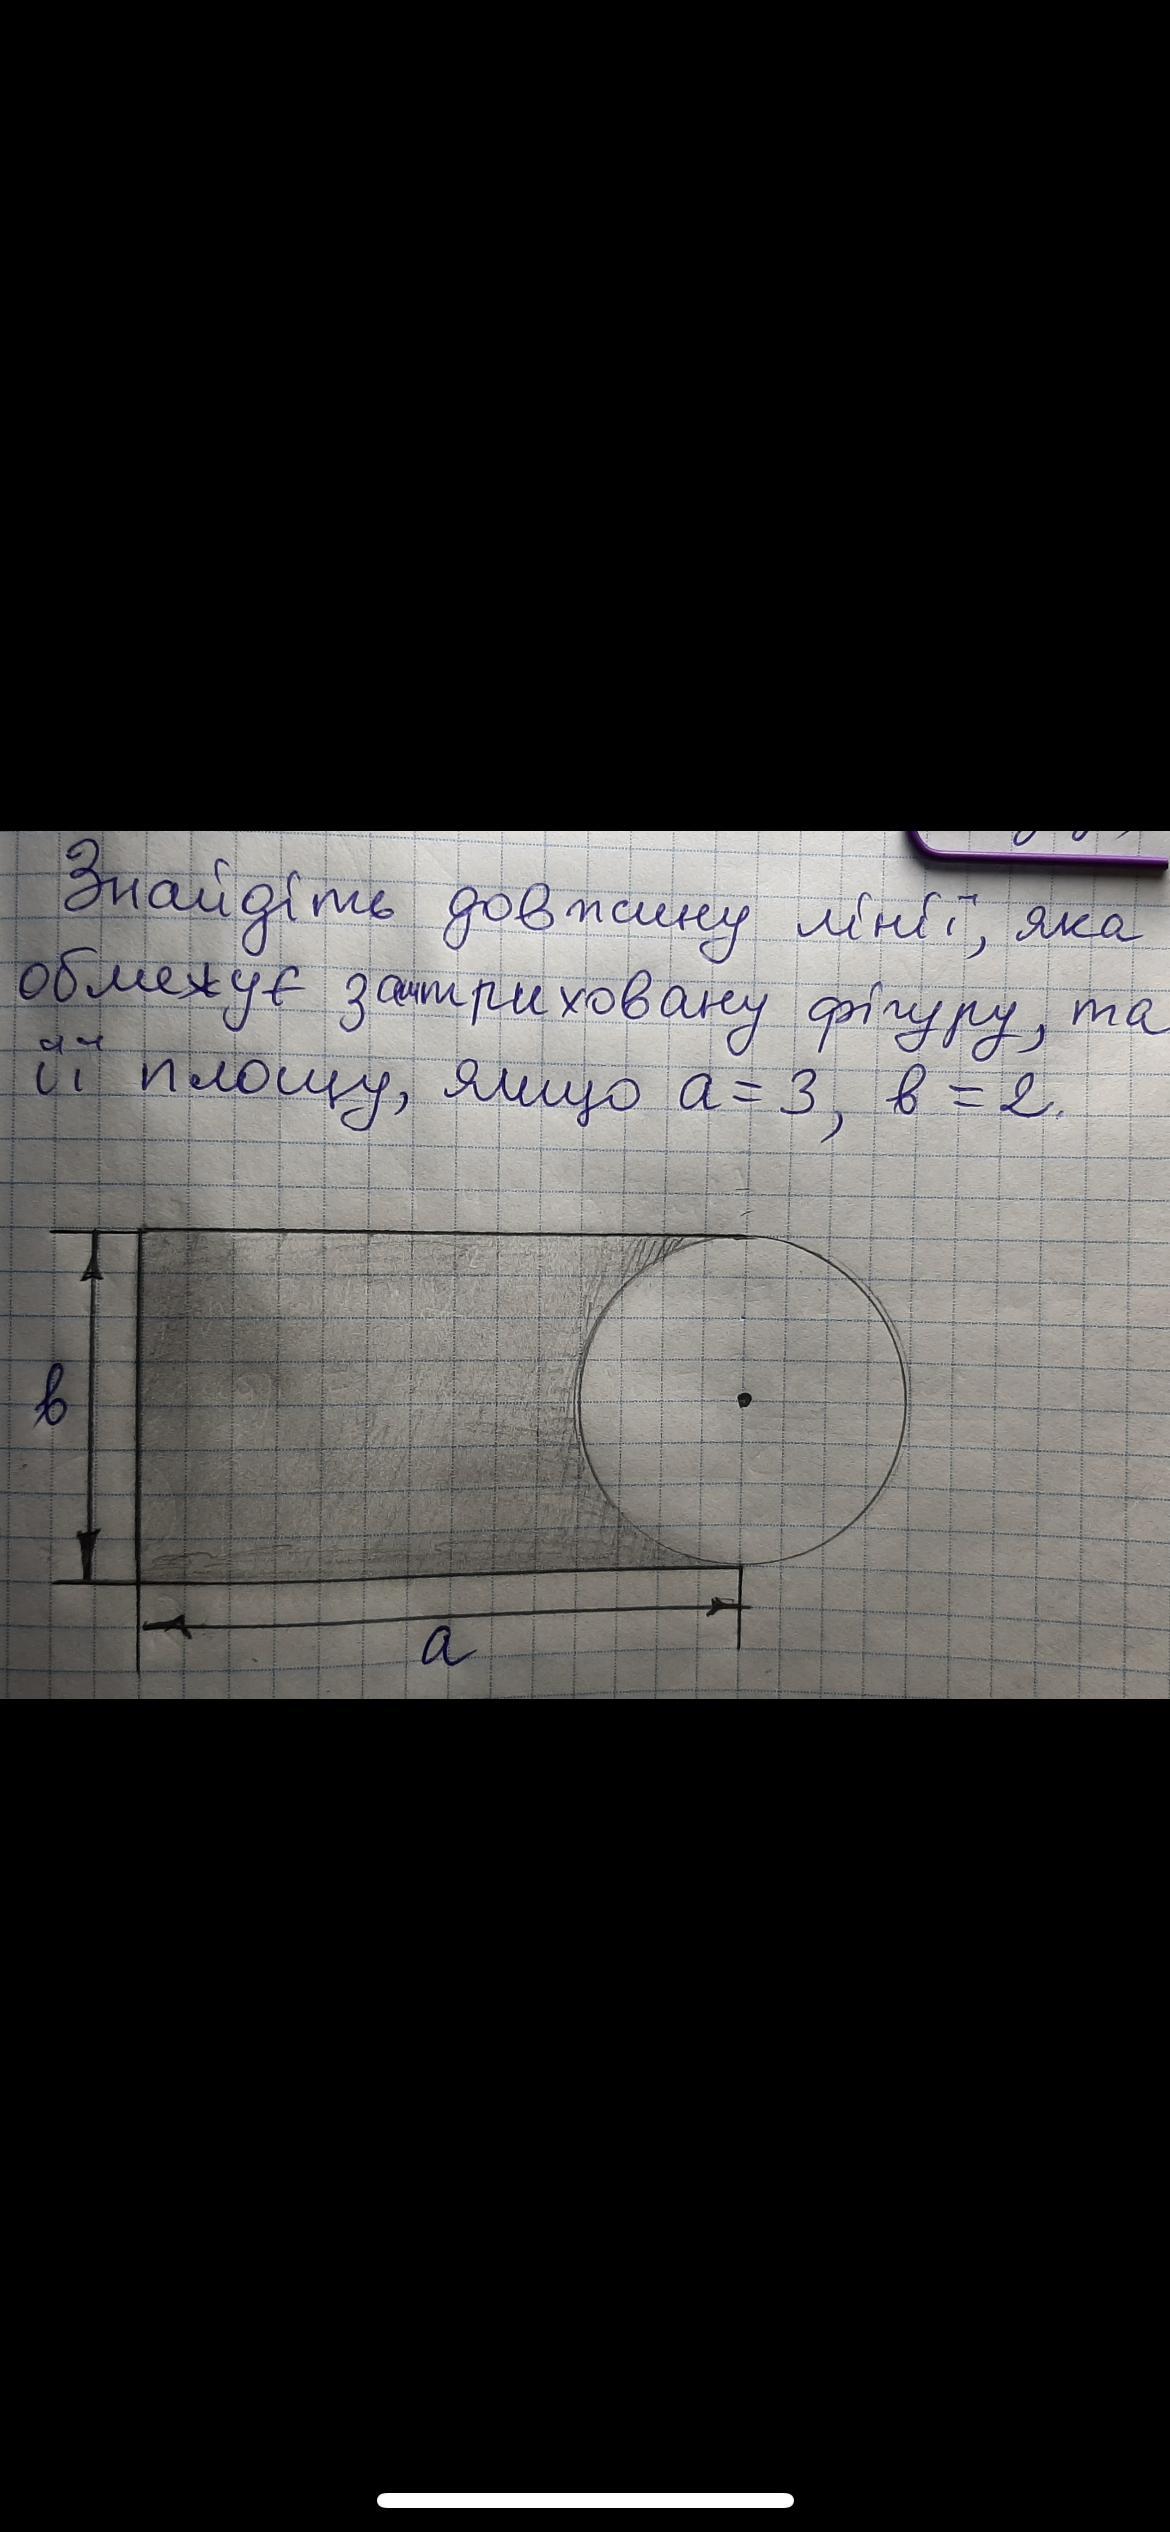 Знайдіть довжину лінії, яка
обмежує заштриховану фігуру, та
її площу, якщо a = 3, в = 2.
в
a